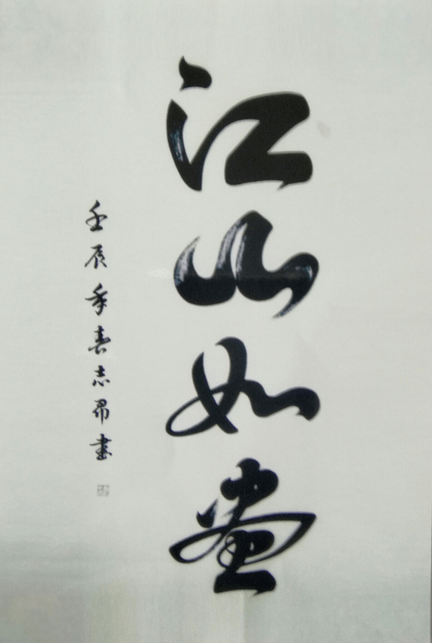 江山如畫
壬辰年春志昂書